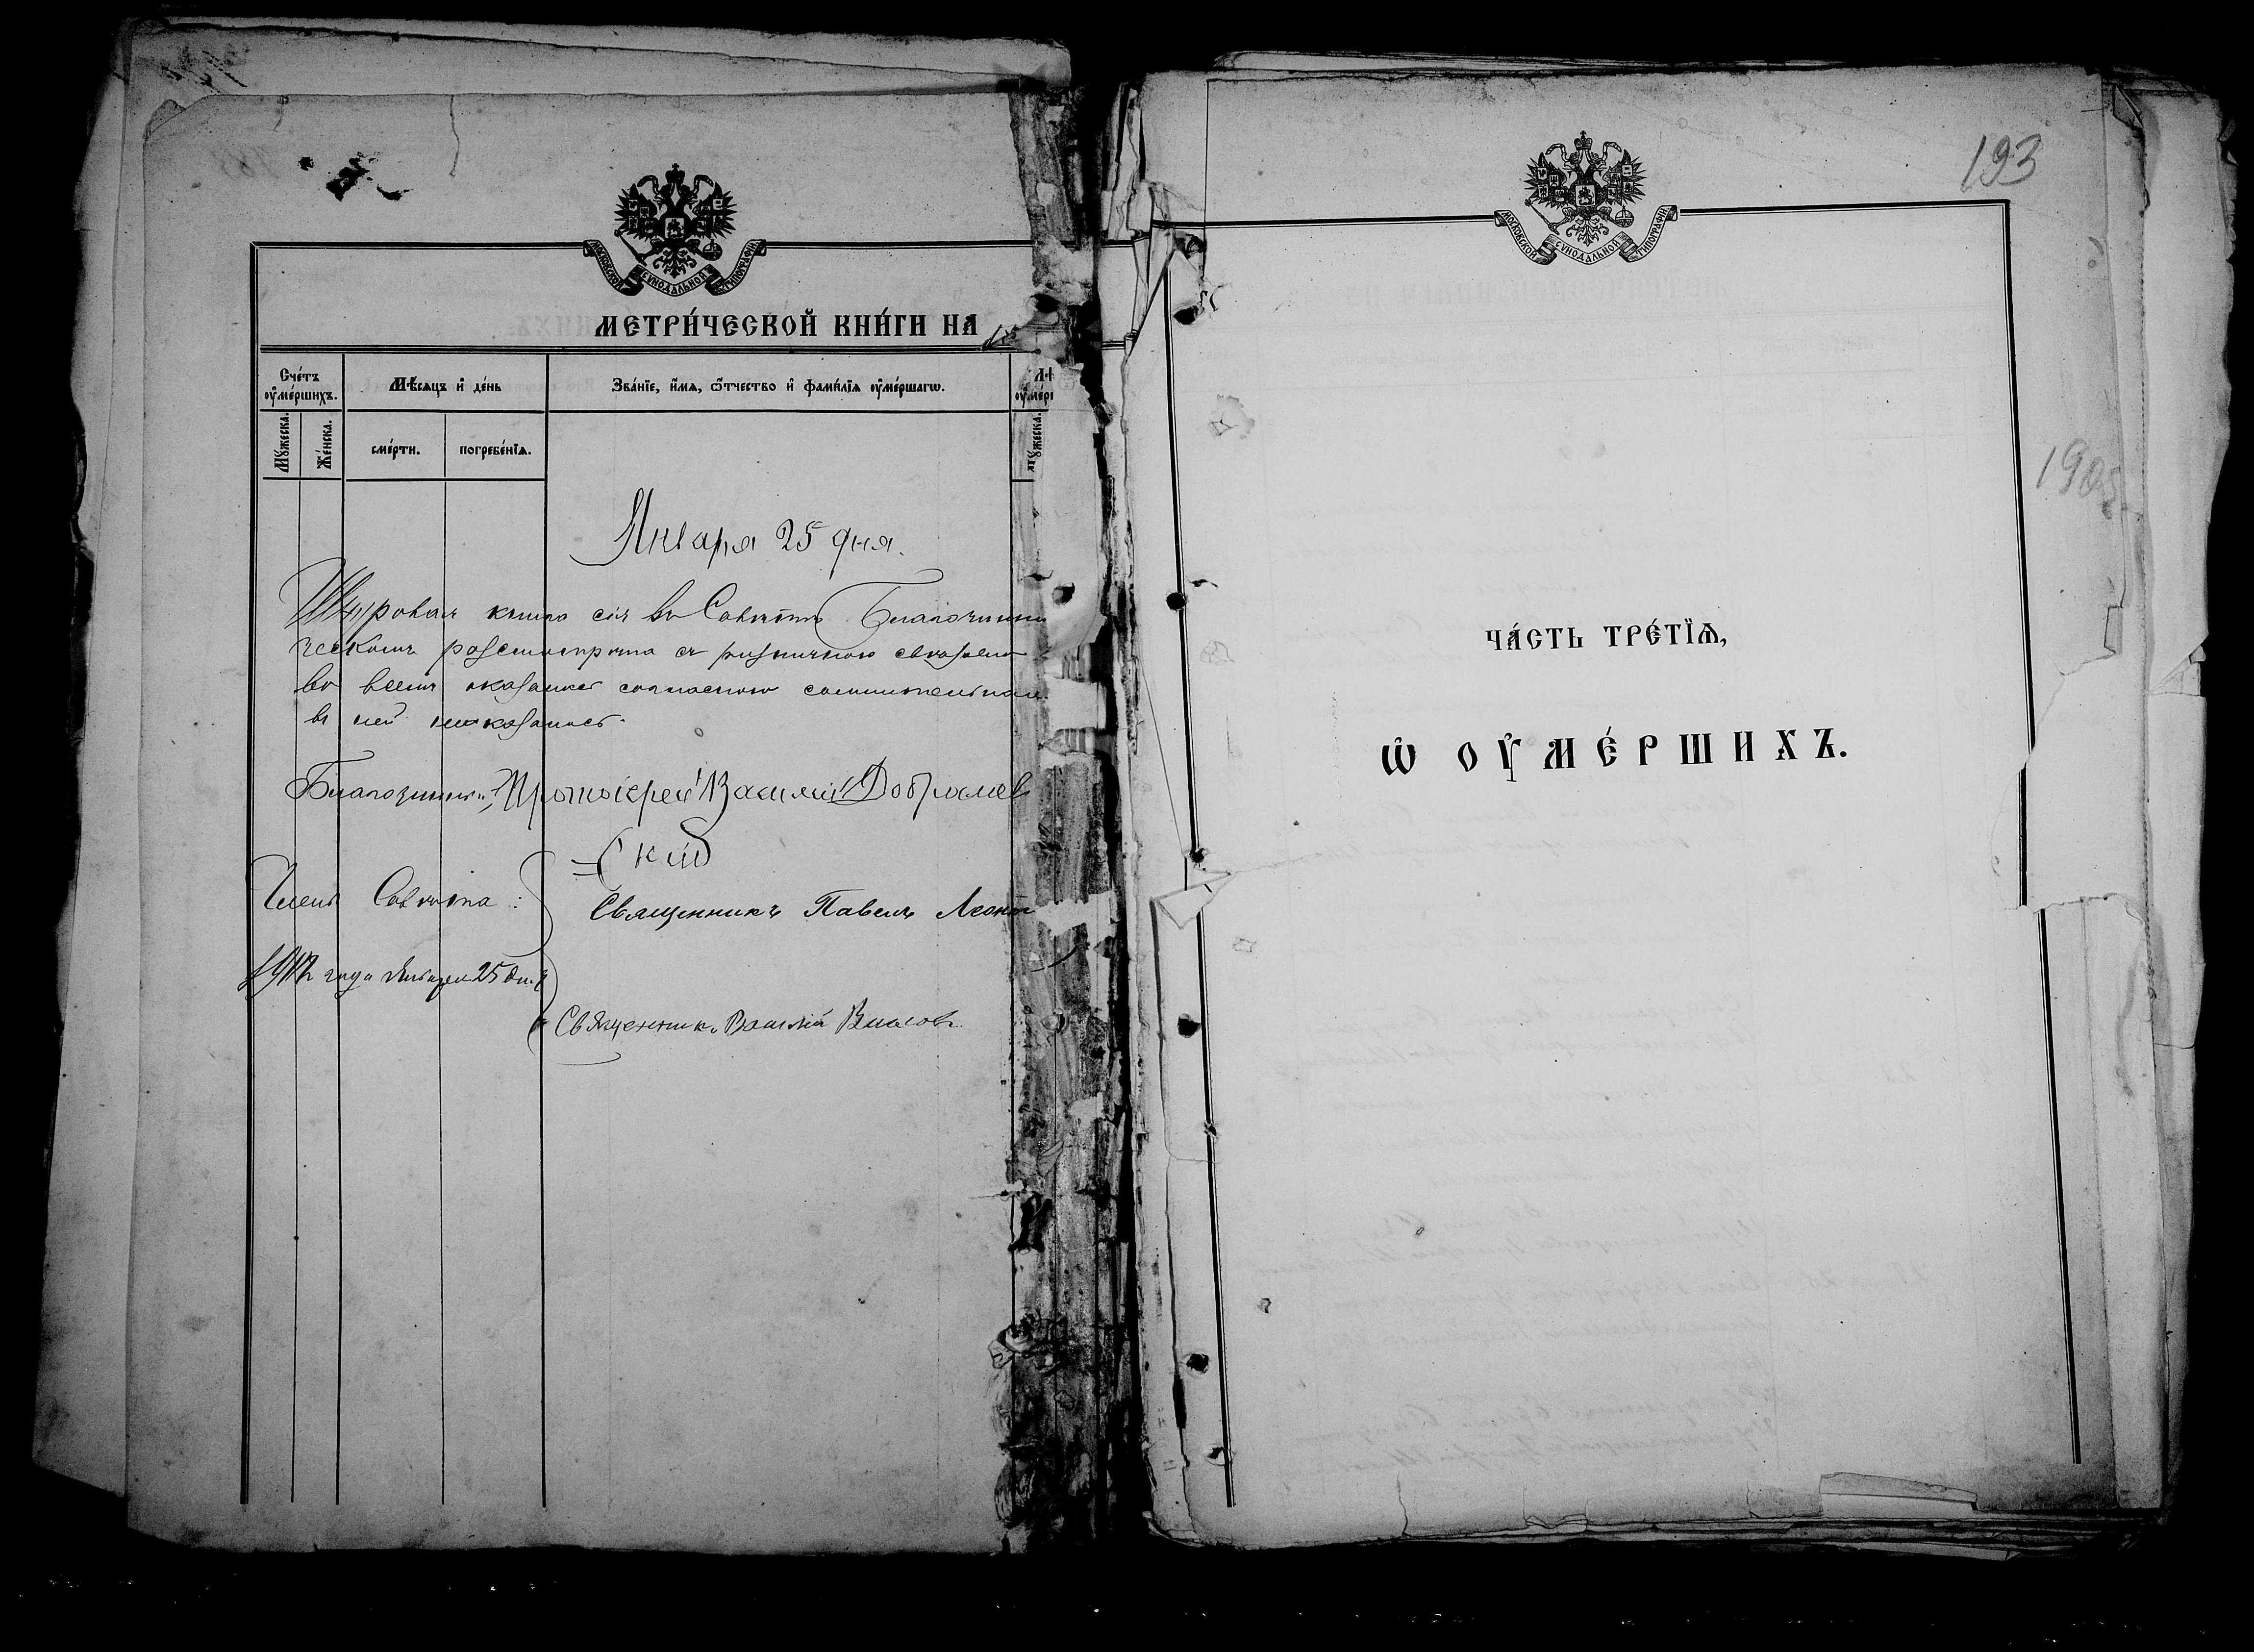 МОСКОВСКОЙ СУНОДАЛЬНОЙ ТИПОГРАФІИ
МЕТРИ́ЧЕСКОЙ КНИ́ГИ НА
Сче́тъ
оу҆ме́ршихъ.
Мѣ́сяцъ и҆ де́нь
Зва́нїе, и҆́мѧ, ѻ҆́тчество и҆ фамѝлїѧ оу҆ме́ршагѡ.
Мꙋ́жеска.
Же́нска.
сме́рти.
погребе́нїѧ.
Мꙋ́жеска.
Января 25 дня.
Шнуровая книга сія въ Совѣтѣ Благочинни
ческомъ разсмотрѣна съ
во всемъ оказалась согласною сомнительнаго
въ ней неоказалось.
Благочинный, Протоіерей Василій Добромыс
скій
Члены Совѣта:
Священникъ Павелъ Леонт
года Января 25 дня
Священникъ Василій Власовъ
193
МОСКОВСКОЙ СУНОДАЛЬНОЙ ТИПОГРАФІИ
1905
ЧА́СТЬ ТРЕ́ТЇѦ,
Ѡ҆ ОУ҆МЕ́РШИХЪ.